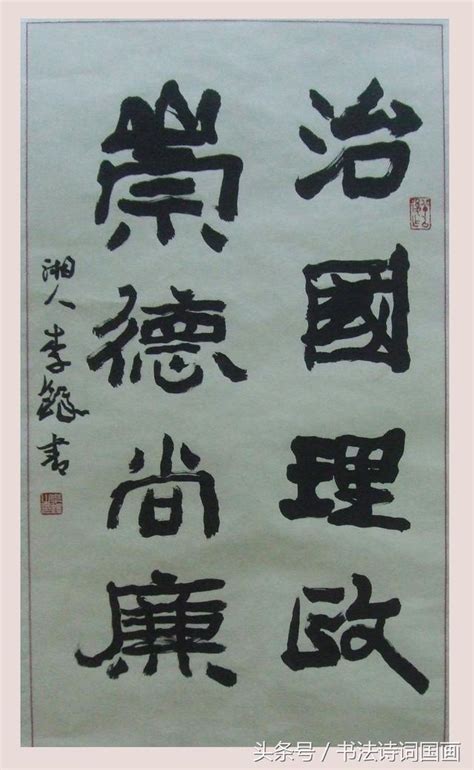 治國理政
崇德尚廉
湘人李銀書
头条号/书法诗词国画